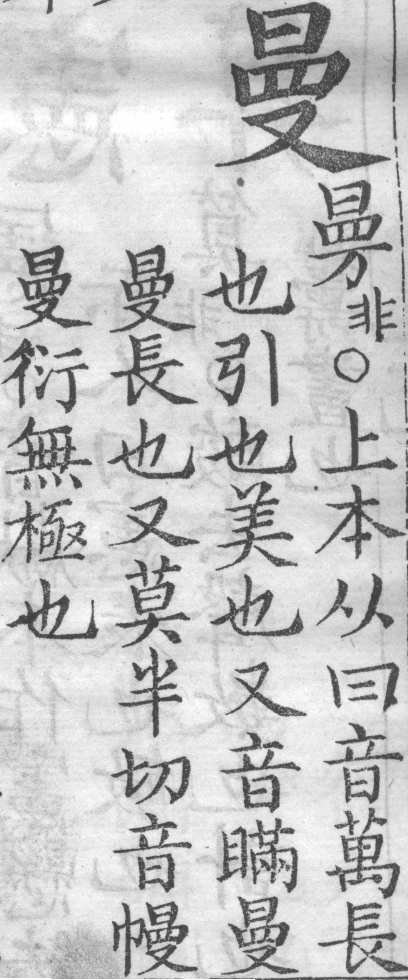 曼
𭦗非〇上本从曰音萬長
也引也美也又音瞞曼
曼長也又莫半切音幔
曼衍無極也